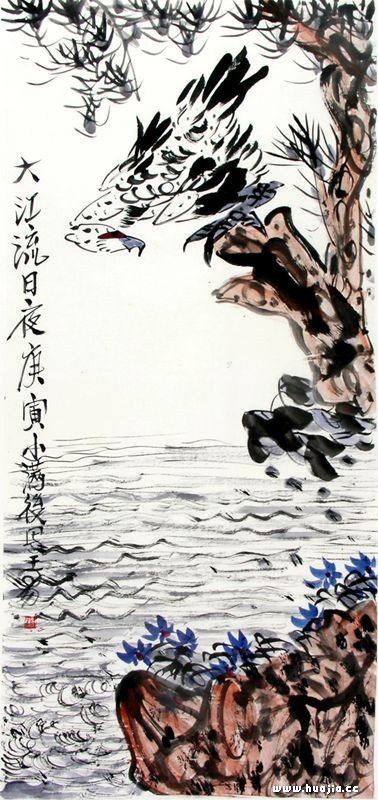 大江流日夜庚寅小滿後王易
www.huajia.cc